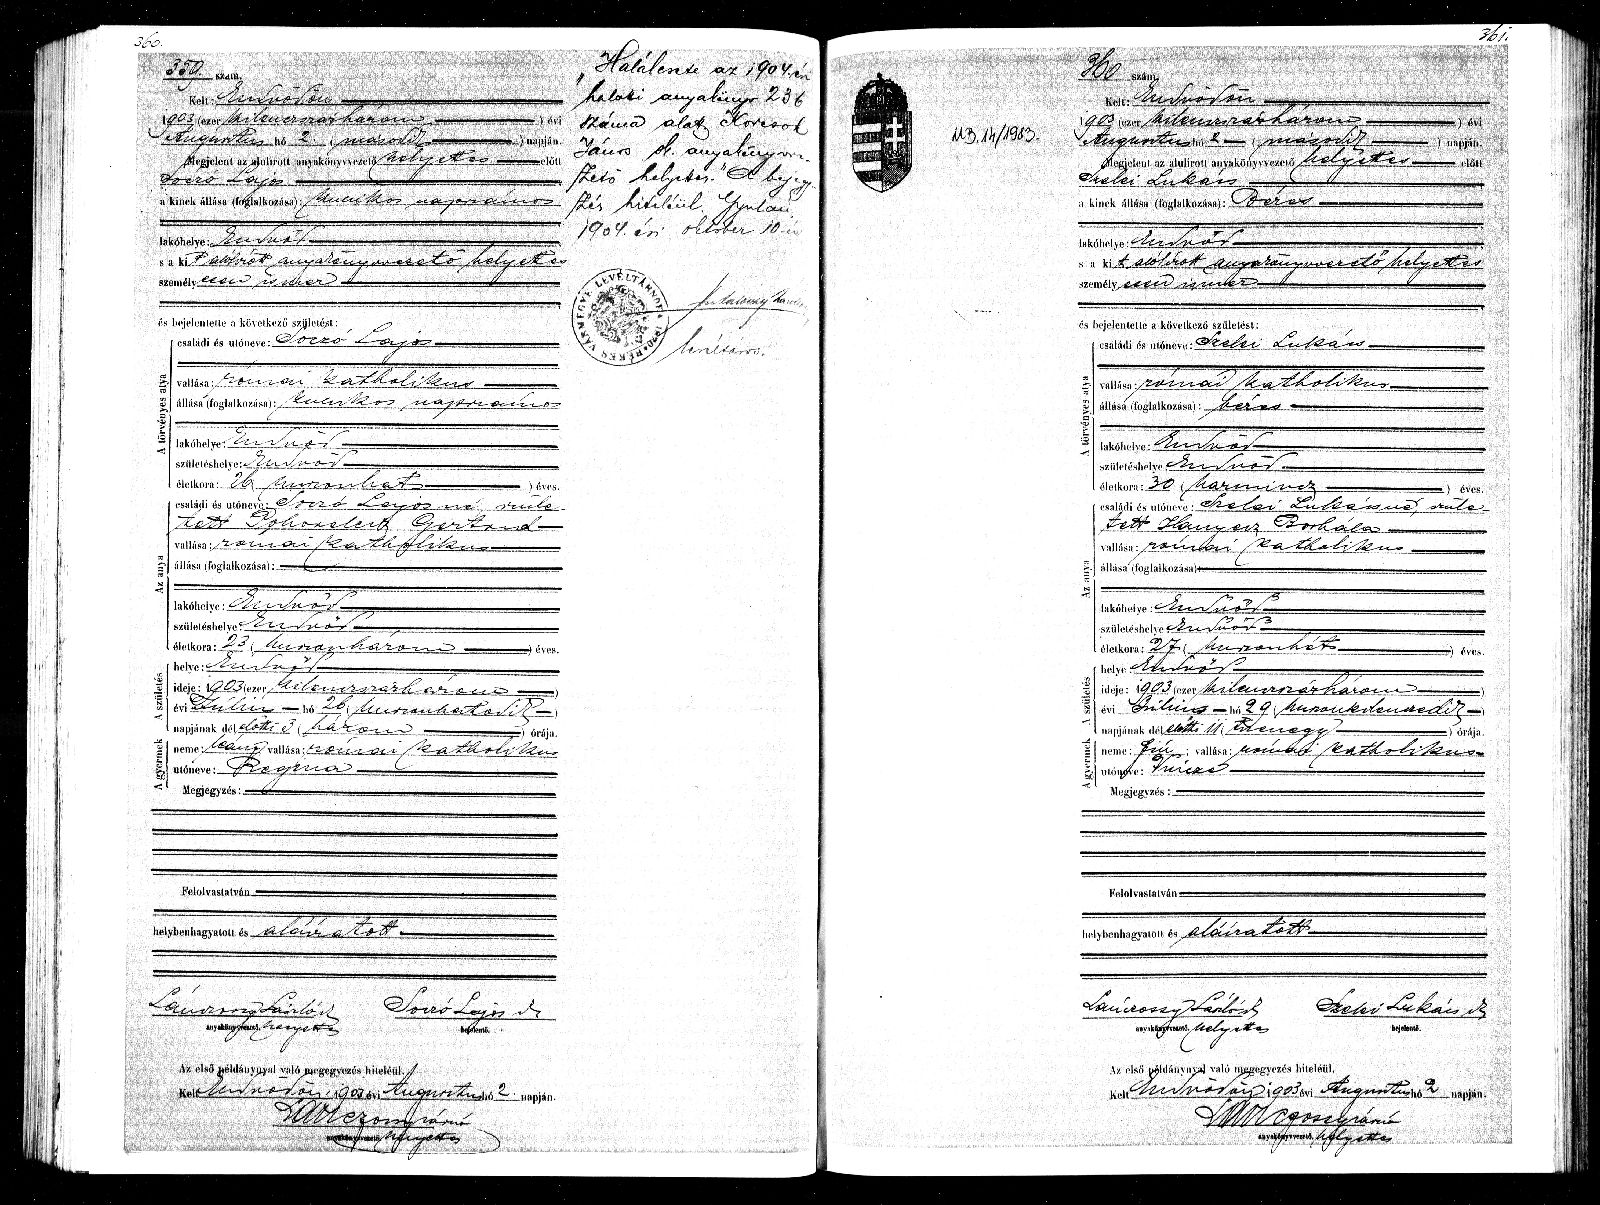 360.
359. szám.
Kelt: Endrődön
1903 (ezer kilenczszázhárom) évi
Augusztus hó 2 (második) napján.
Megjelent az alulirott anyakönyvvezető helyettes előtt
Soczó Lajos
a kinek állása (foglalkozása): kulikos napszámos
lakóhelye: Endrőd
s a kit alólirott anyakönyvvezető helyettes
személyesen ismer
és bejelentette a következő születést:
A törvényes atya
családi és utóneve: Soczó Lajos
vallása: római katholikus
állása (foglalkozása): kulikos napszámos
lakóhelye: Endrőd
születéshelye: Endrőd
életkora: 26 (huszonhat) éves.
Az anya
családi és utóneve: Soczó Lajosné, szüle-
tett Gertrud
vallása: római katholikus
állása (foglalkozása):
lakóhelye: Endrőd
születéshelye: Endrőd
életkora: 23 (huszonhárom) éves.
A születés
helye: Endrőd
ideje: 1903 (ezer kilenczszázhárom)
évi Július hó 26 (huszonhatodik)
napjának délelőtti 3 (három) órája.
A gyermek
neme: leány vallása: római katholikus
utóneve: Regina
Megjegyzés:
Felolvastatván
helybenhagyatott és aláiratott
László
anyakönyvvezető. helyettes
Soczó Lajos
bejelentő.
Az első példánynyal való megegyezés hiteléül.
Kelt Endrődön, 1903 évi Augusztus hó 2 napján.
anyakönyvvezető. helyettes
„Halálesete az 1904. évi
halotti anyakönyv 236
száma alatt Korcsok
János s. k. anyakönyvve-
zető helyettes." A bejegy-
zés hiteléül Gyulán,
1904. évi október 10-én
BÉKÉS VÁRMEGYE LEVÉLTÁRNOK
levéltáros.
361.
360 szám.
MB. 14/1983.
Kelt: Endrődön
1903 (ezer kilenczszázhárom) évi
Augusztus hó 2 (második) napján.
Megjelent az alulirott anyakönyvvezető helyettes előtt
Szelei Lukács
a kinek állása (foglalkozása): Béres
lakóhelye: Endrőd
s a kit alólirott anyakönyvvezető helyettes
személyesen ismer
és bejelentette a következő születést:
A törvényes atya
családi és utóneve: Szelei Lukács
vallása: római katholikus
állása (foglalkozása): béres
lakóhelye: Endrőd
születéshelye: Endrőd
életkora: 30 (harmincz) éves.
Az anya
családi és utóneve: Szelei Lukácsné, szüle-
tett Hanyecz Borbála
vallása: római katholikus
állása (foglalkozása):
lakóhelye: Endrőd
születéshelye: Endrőd
életkora: 27 (huszonhét) éves.
A születés
helye: Endrőd
ideje: 1903 (ezer kilenczszázhárom)
évi Július hó 29 (huszonkilenczedik)
napjának délelőtti 11 (tizenegy) órája.
A gyermek
neme: fiú; vallása: római katholikus
utóneve: Vincze
Megjegyzés:
Felolvastatván
helybenhagyatott és aláiratott
László
anyakönyvvezető. helyettes
Szelei Lukács
bejelentő.
Az első példánynyal való megegyezés hiteléül.
Kelt Endrődön, 1903 évi Augusztus hó 2 napján.
anyakönyvvezető. helyettes